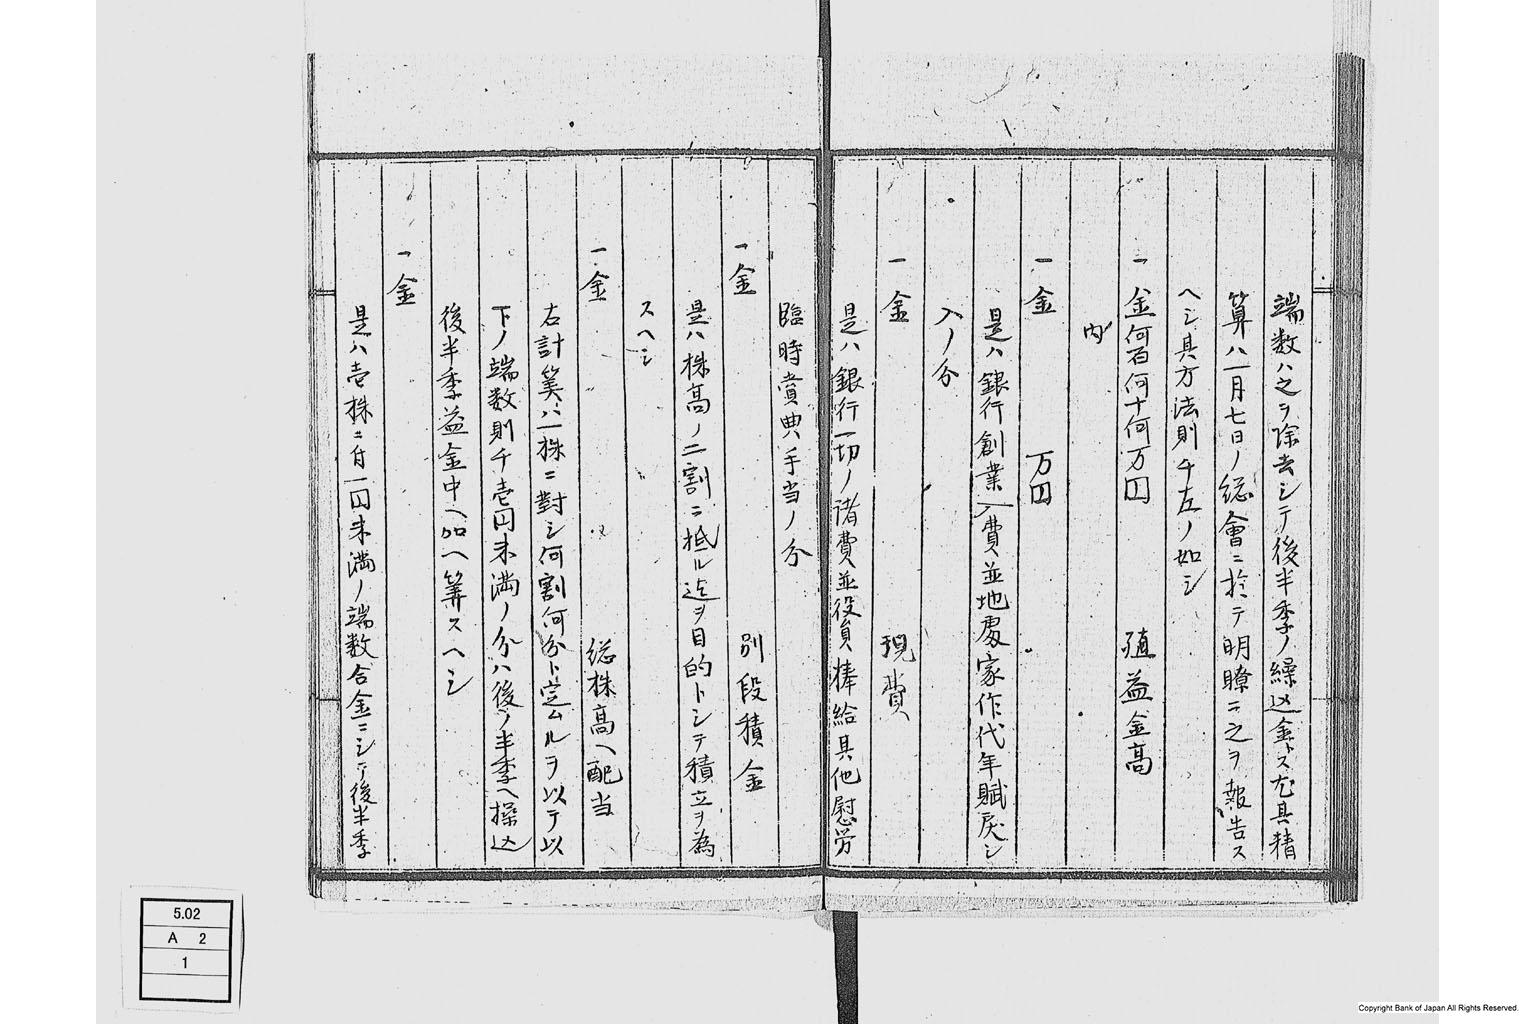 端数ハ之ヲ除去シテ後半季ノ繰込金トス尤其精
算ハ一月七日ノ総會ニ於テ明瞭ニ之ヲ報告ス
ヘシ其方法則チ左ノ如シ
一金何百何十何万円 殖益金高
内
一金 万円
是ハ銀行創業入費並地處家作代年賦戻シ
入ノ分
一金 現費
是ハ銀行一切ノ諸費並役員棒給其他慰労
臨時賞典手当ノ分
一金 別段積金
是ハ株高ノ二割ニ抵ル迄ヲ目的トシテ積立ヲ為
スヘシ
一金 総株高ヘ配当
右計筭ハ一株ニ對シ何割何分ト定ムルヲ以テ以
下ノ端数則チ壱円未満ノ分ハ後ノ半季ヘ操込
後半季益金中ヘ加ヘ筭スヘシ
一金
是ハ壱株ニ付一円未満ノ端数合金ニシテ後半季
5.02
A 2
1
Copyright Bank of Japan All Rights Reserved.